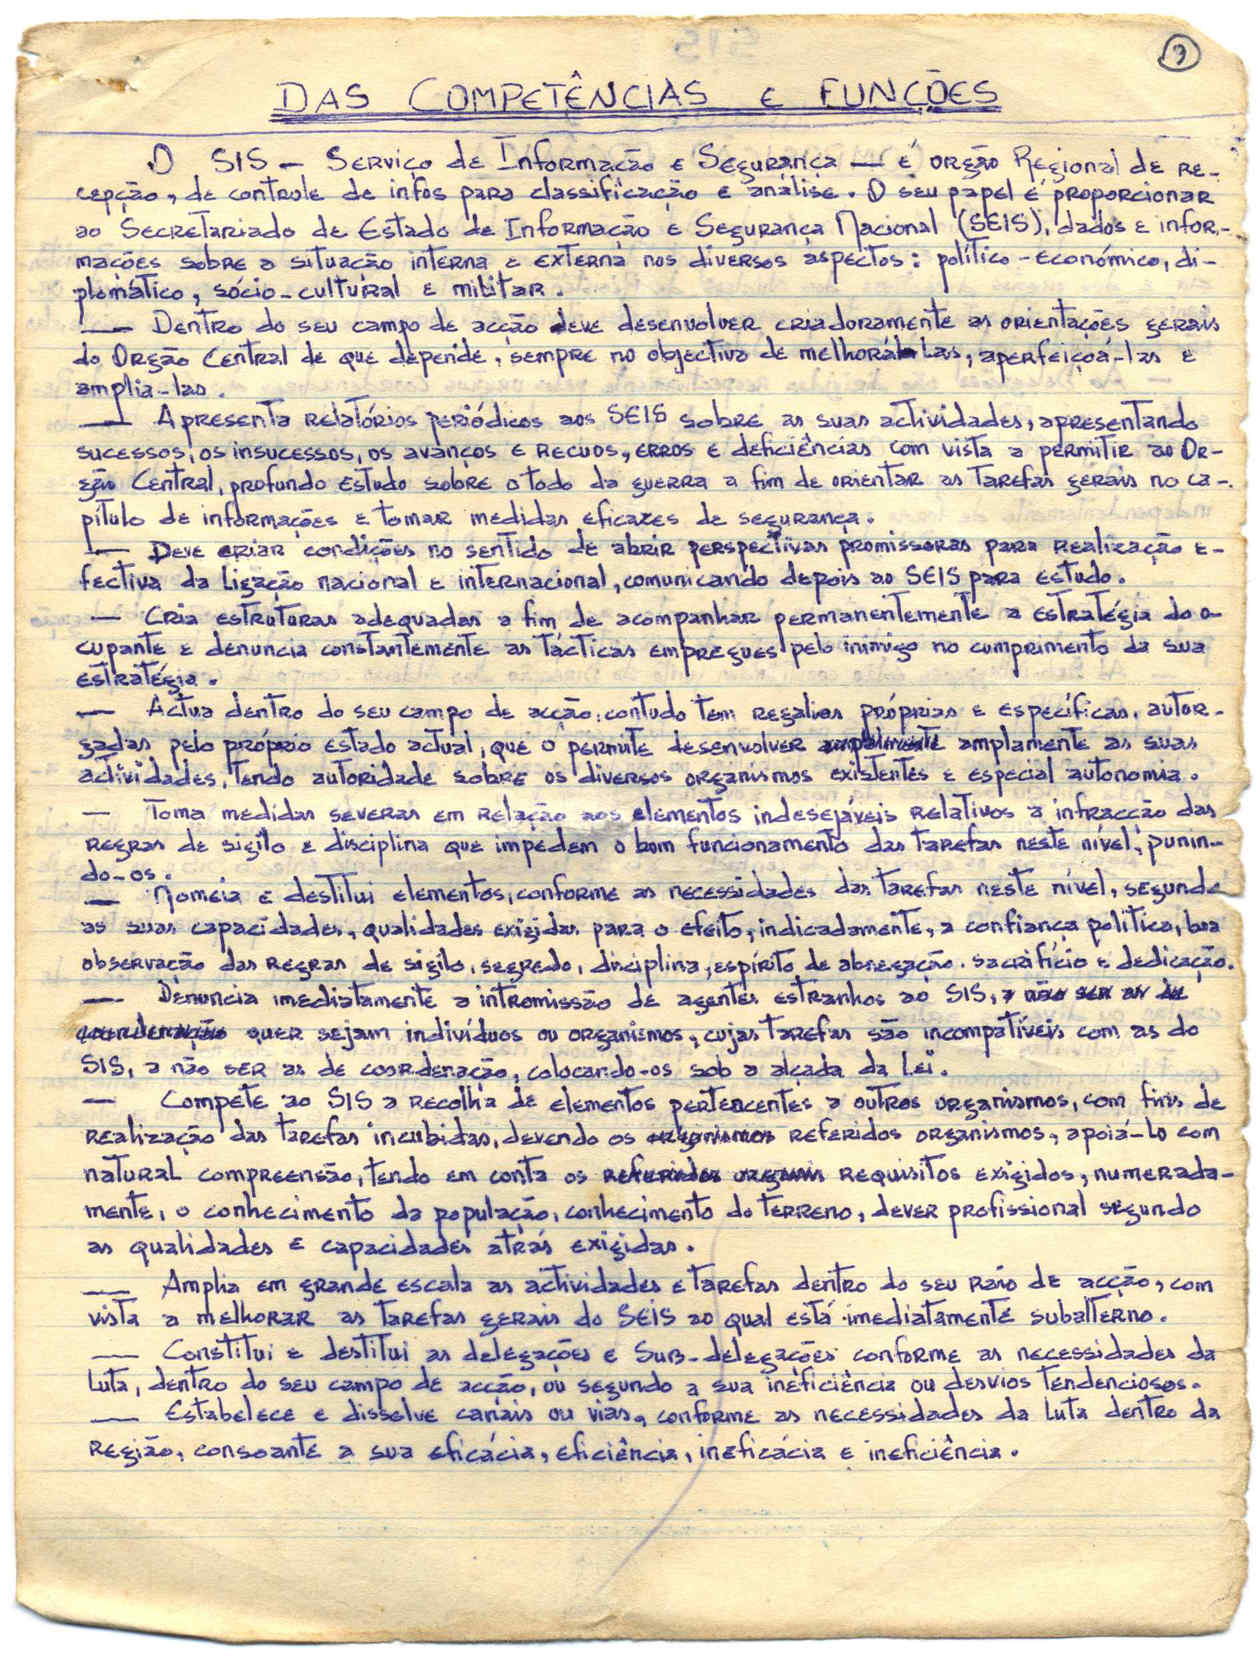 3
DAS COMPETÊNCIAS E FUNÇÕES
O SIS — Serviço de Informação e Segurança — é orgão Regional de re-
cepção, de controle de infos para classificação e análise. O seu papel é proporcionar
ao Secretariado de Estado de Informação e Segurança Nacional (SEIS), dados e infor-
mações sobre a situação interna e externa nos diversos aspectos: político-económico, di-
plomático, sócio-cultural e militar.
— Dentro do seu campo de acção deve desenvolver criadoramente as orientações gerais
do Orgão Central de que depende, sempre no objectivo de melhorá-las, aperfeiçoá-las e
amplia-las.
— Apresenta relatórios periódicos aos SEIS sobre as suas actividades, apresentando
sucessos, os insucessos, os avanços e recuos, erros e deficiências com vista a permitir ao Or-
gão Central, profundo estudo sobre o todo da guerra a fim de orientar as tarefas gerais no ca-
pítulo de informações e tomar medidas eficazes de segurança.
— Deve criar condições no sentido de abrir perspectivas promissoras para realização e-
fectiva da ligação nacional e internacional, comunicando depois ao SEIS para estudo.
— Cria estruturas adequadas a fim de acompanhar permanentemente a estratégia do o-
cupante e denuncia constantemente as tácticas empregues pelo inimigo no cumprimento da sua
estratégia.
— Actua dentro do seu campo de acção, contudo tem regalias próprias e específicas, autor-
gadas pelo próprio estado actual, que o permite desenvolver amplamente as suas
actividades, tendo autoridade sobre os diversos organismos existentes e especial autonomia.
— Toma medidas severas em relação aos elementos indesejáveis relativos a infracção das
regras de sigilo e disciplina que impedem o bom funcionamento das tarefas neste nível, punin-
do-os.
— Nomeia e destitui elementos, conforme as necessidades das tarefas neste nível, segundo
as suas capacidades, qualidades exigidas para o efeito, indicadamente, a confiança política, boa
observação das regras de sigilo, segredo, disciplina, espírito de abnegação, sacrifício e dedicação.
— Denuncia imediatamente a intromissão de agentes estranhos ao SIS, a não ser as de
coordenação quer sejam indivíduos ou organismos, cujas tarefas são incompatíveis com as do
SIS, a não ser as de coordenação, colocando-os sob a alçada da Lei.
— Compete ao SIS a recolha de elementos pertencentes a outros organismos, com fins de
realização das tarefas incubidas, devendo os organismos referidos organismos, apoiá-lo com
natural compreensão, tendo em conta os referidos requisitos exigidos, numerada-
mente, o conhecimento da população, conhecimento do terreno, dever profissional segundo
as qualidades e capacidades atrás exigidas.
— Amplia em grande escala as actividades e tarefas dentro do seu raio de acção, com
vista a melhorar as tarefas gerais do SEIS ao qual está imediatamente subalterno.
— Constitui e destitui as delegações e Sub-delegações conforme as necessidades da
Luta, dentro do seu campo de acção, ou segundo a sua ineficiência ou desvios tendenciosos.
— Estabelece e dissolve canais ou vias, conforme as necessidades da Luta dentro da
Região, consoante a sua eficácia, eficiência, ineficácia e ineficiência.